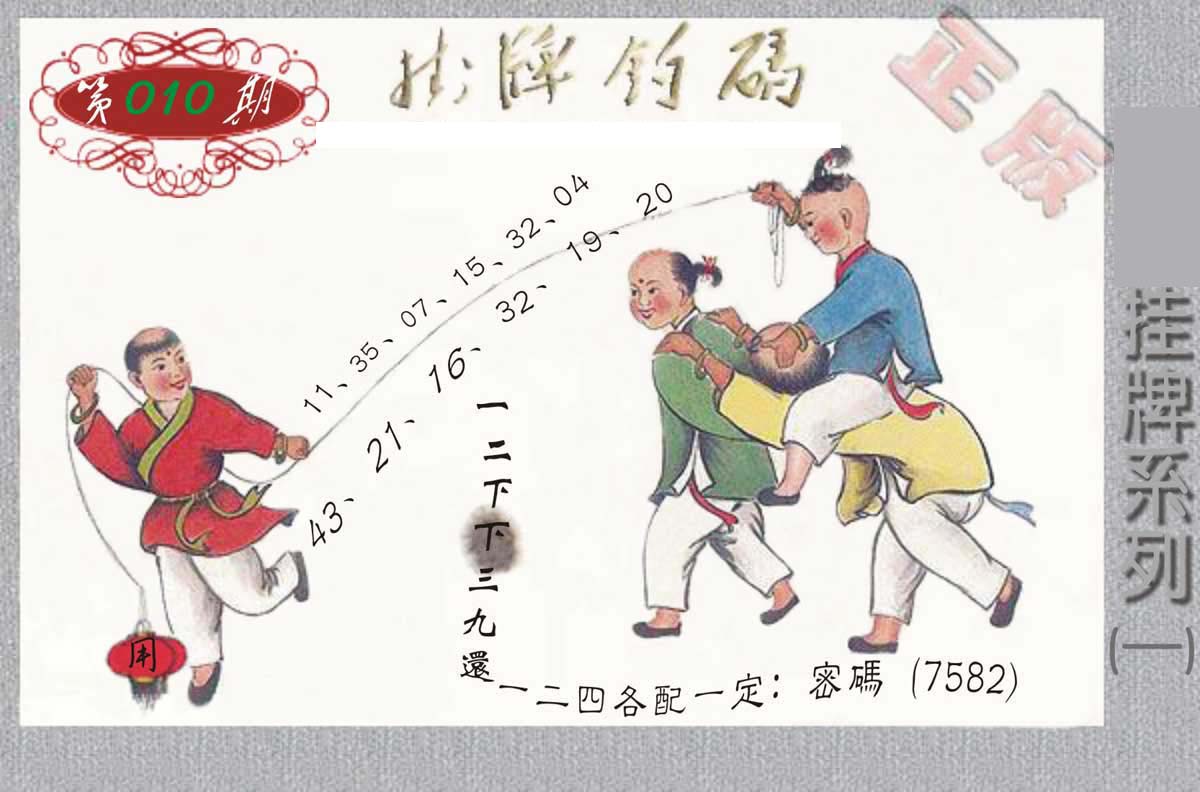 第010期
掛牌釣碼
正版
11、35、07、15、32、04
43、21、16、32、19、20
一二下下三九還
一二四各配一定：密碼（7582）
挂牌系列（一）